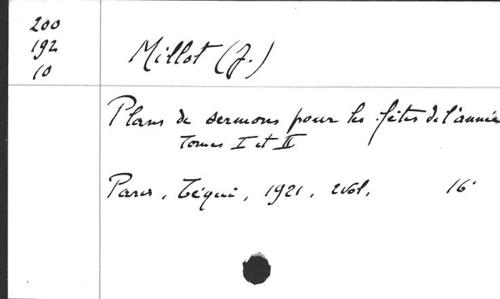 200
192
10
Millot (J.)
Plans de sermons pour les fêtes de l'année
Tomes I et II
Paris, Téqui, 1921, 2 vol, 16°